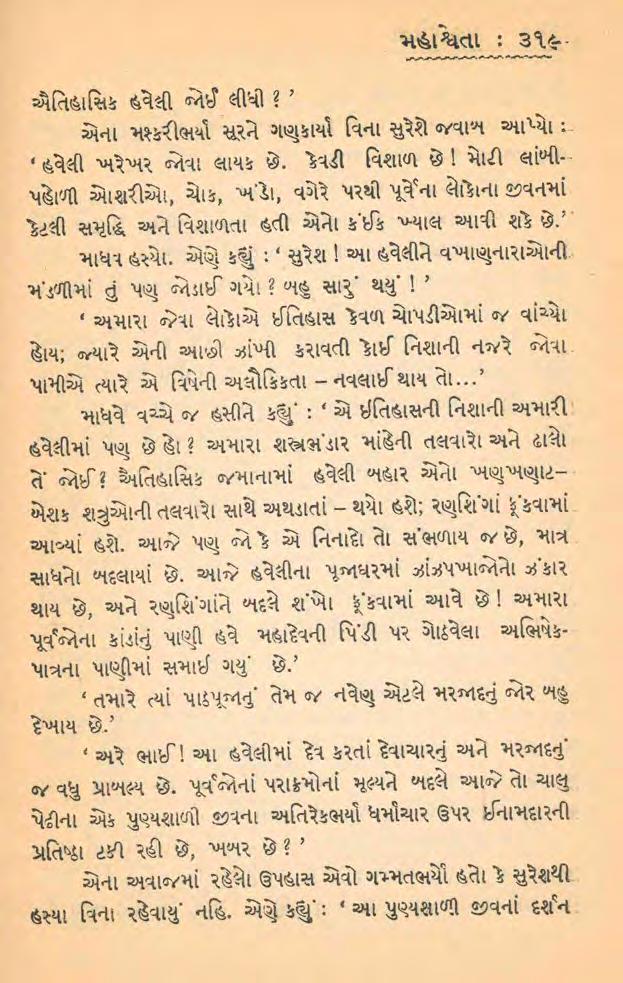 મહાશ્વેતા : ૩૧૯
ઐતિહાસિક હવેલી જોઈ લીધી ? ’
એના મશ્કરીભર્યા સૂરને ગણકાર્યા વિના સુરેશે જવાબ આપ્યો :
‘ હવેલી ખરેખર જોવા લાયક છે. કેવડી વિશાળ છે ! મોટી લાંબી-
પહોળી ઓશરીઓ, ચોક, ખંડો, વગેરે પરથી પૂર્વેના લોકોના જીવનમાં
કેટલી સમૃદ્ધિ અને વિશાળતા હતી એનો કંઈક ખ્યાલ આવી શકે છે.’
માધવ હસ્યો. એણે કહ્યું : ‘ સુરેશ ! આ હવેલીને વખાણનારાઓની
મંડળીમાં તું પણ જોડાઈ ગયો ? બહુ સારું થયું ! ’
‘ અમારા જેવા લોકોએ ઈતિહાસ કેવળ ચોપડીઓમાં જ વાંચ્યો
હોય; જ્યારે એની આછી ઝાંખી કરાવતી કોઈ નિશાની નજરે જોવા
પામીએ ત્યારે એ વિષેની અલૌકિકતા – નવલાઈ થાય તો...’
માધવે વચ્ચે જ હસીને કહ્યું : ‘ એ ઈતિહાસની નિશાની અમારી
હવેલીમાં પણ છે હો ? અમારા શસ્ત્રભંડાર માંહેની તલવારો અને ઢાલો
તેં જોઈ ? ઐતિહાસિક જમાનામાં હવેલી બહાર એનો ખણખણાટ–
બેશક શત્રુઓની તલવારો સાથે અથડાતાં – થયો હશે; રણશિંગાં ફૂંકવામાં
આવ્યાં હશે. આજે પણ જો કે એ નિનાદો તો સંભળાય જ છે, માત્ર
સાધનો બદલાયાં છે. આજે હવેલીના પૂજાઘરમાં ઝાંઝપખાજોનો ઝંકાર
થાય છે, અને રણશિંગાંને બદલે શંખો ફૂંકવામાં આવે છે ! અમારા
પૂર્વજોના કાંડાંનું પાણી હવે મહાદેવની પિંડી પર ગોઠવેલા અભિષેક-
પાત્રના પાણીમાં સમાઈ ગયું છે.’
‘ તમારે ત્યાં પાઠપૂજાનું તેમ જ નવેણ એટલે મરજાદનું જોર બહુ
દેખાય છે.’
‘ અરે ભાઈ ! આ હવેલીમાં દેવ કરતાં દેવાચારનું અને મરજાદનું
જ વધુ પ્રાબલ્ય છે. પૂર્વજોનાં પરાક્રમોનાં મૂલ્યને બદલે આજે તો ચાલુ
પેઢીના એક પુણ્યશાળી જીવના અતિરેકભર્યા ધર્માચાર ઉપર ઈનામદારની
પ્રતિષ્ઠા ટકી રહી છે, ખબર છે ? ’
એના અવાજમાં રહેલો ઉપહાસ એવો ગમ્મતભર્યો હતો કે સુરેશથી
હસ્યા વિના રહેવાયું નહિ. એણે કહ્યું : ‘ આ પુણ્યશાળી જીવનાં દર્શન